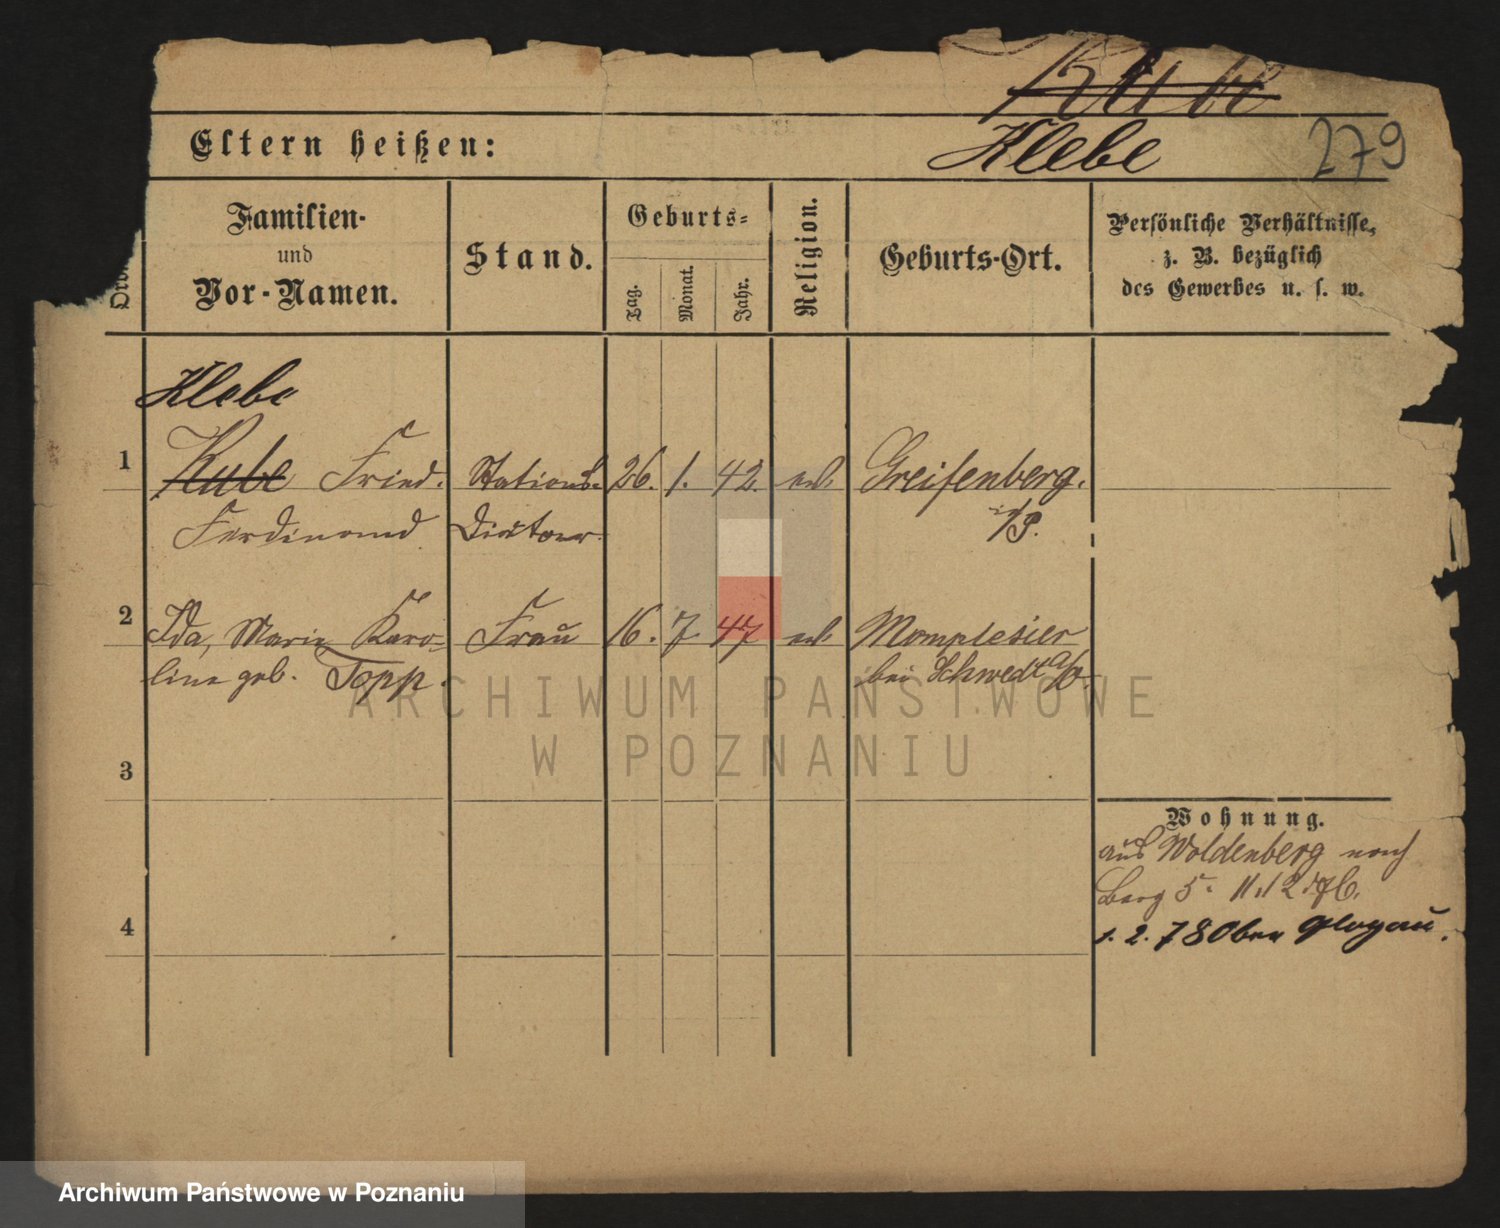 Kube
Klebe
279
Eltern heißen:
Familien-
und
Vor-Namen.
Stand.
Geburts-
Tag.
Monat.
Jahr.
Religion.
Geburts-Ort.
Persönliche Verhältnisse,
z. B. bezüglich
des Gewerbes u. s. w.
Klebe
1 Kube Fried. Stations- 26. 1. 42. ev. Greifenberg.
Ferdinand Diätar i/P.
2 Ida, Marie Karo- Frau 16. 7 47 ev. Momplesier
line geb. Topp. bei Schwedt a/O.
ARCHIWUM PAŃSTWOWE
W POZNANIU
3
Wohnung.
aus Woldenberg nach
Berg 5. 11.12 76.
4
1. 2. 78 Ober Glogau.
Archiwum Państwowe w Poznaniu